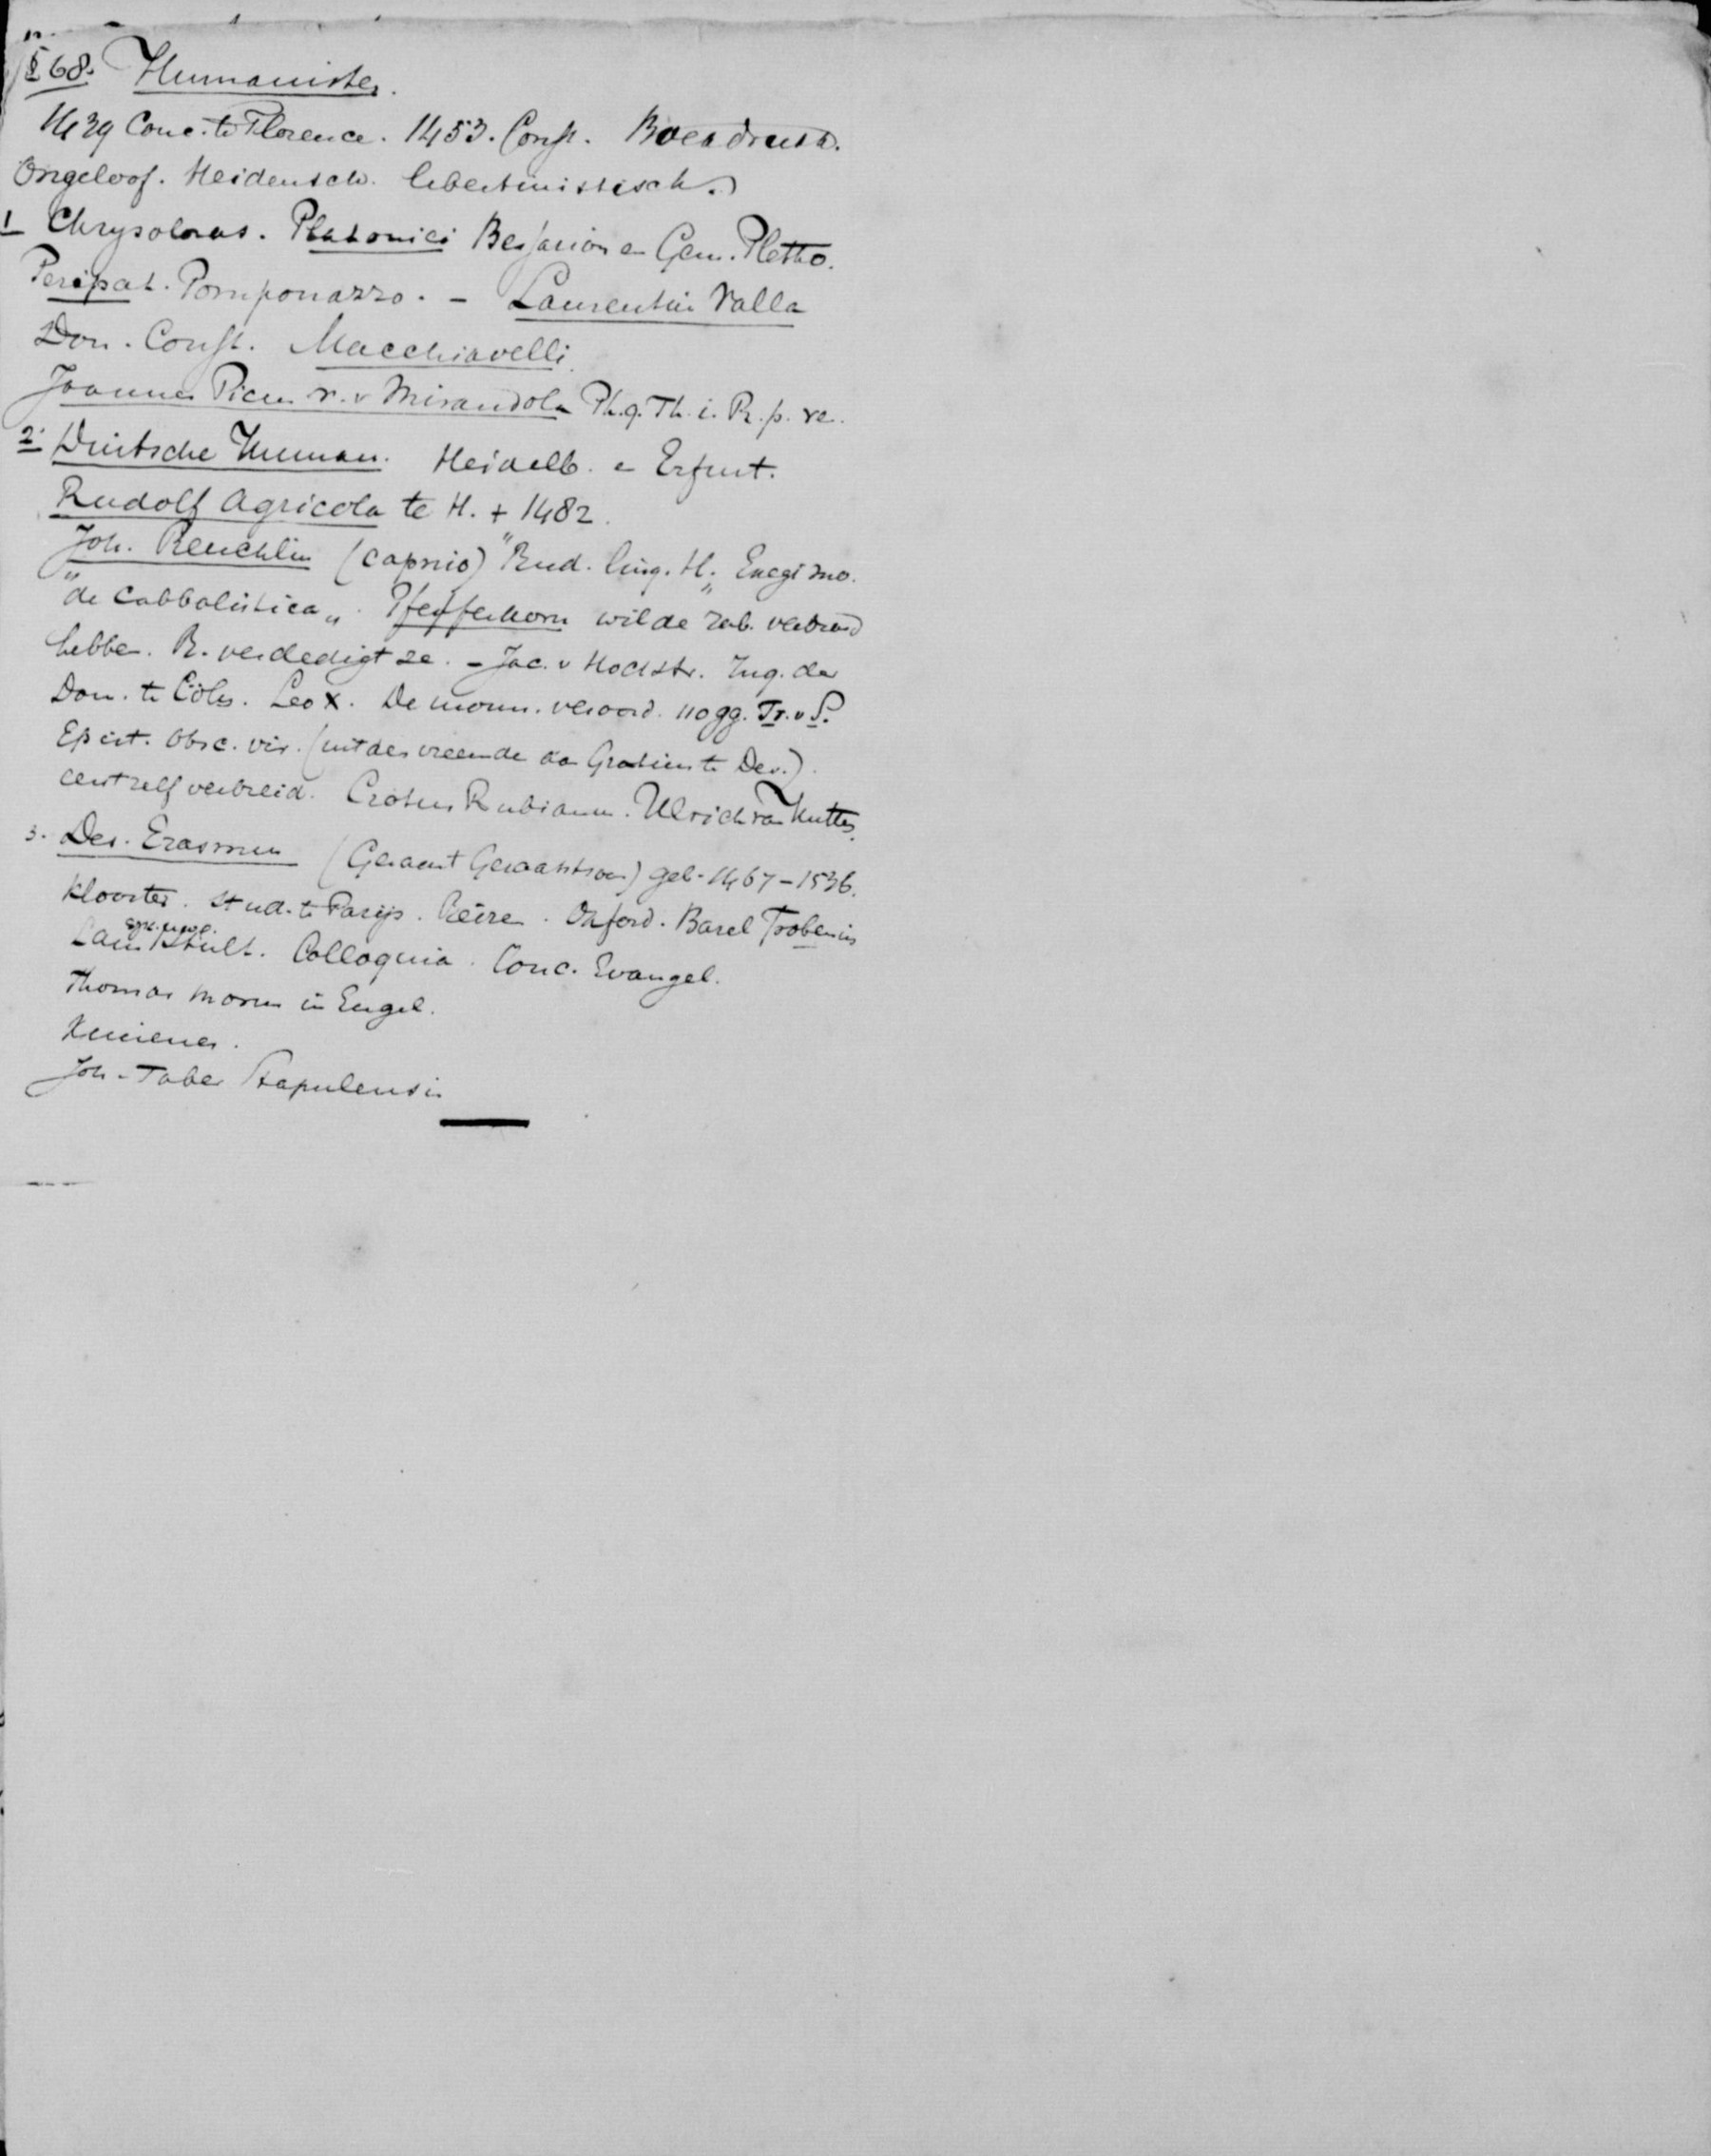 § 68. Humanisten.
1439 Conc. te Florence. 1453. Const. Boekdrukk.
Ongeloof. Heidensch. libertinistisch.
1 Chrysoloras. Platonici Bessarion en Gem. Pletho.
Peripat. Pomponazzo. – Laurentius Valla
Don. Const. Macchiavelli.
Joannes Picus v. Mirandola Ph. q. Th. i. R. p. ve.
2. Duitsche Human. Heidelb. en Erfurt.
Rudolf Agricola te H. + 1482.
Joh. Reuchlin (Capnio) "Rud. ling. H." Exegi mo.
"de Cabbalistica". Pfefferkorn wilde rab. verbrand
hebben. R. verdedigt ze. – Jac. v Hochstr. Inq. der
Dom. te Cöln. Leo X. De monn. veroord. nogg. Tr. v S.
Epist. obsc. vir. (uit den vreemde aan Gratius te Dev.).
eerst zelf verbreid. Crotus Rubianus. Ulrich van Hutten.
3. Des. Erasmus (Geraert Geraertszoon) geb. 1467 – 1536.
Klooster. stud. te Parijs. Reizen. Oxford. Basel Frobenius
Laus Stult. Colloquia. Conc. Evangel.
Thomas Morus in Engel.
Ximenes.
Joh. Faber Stapulensis